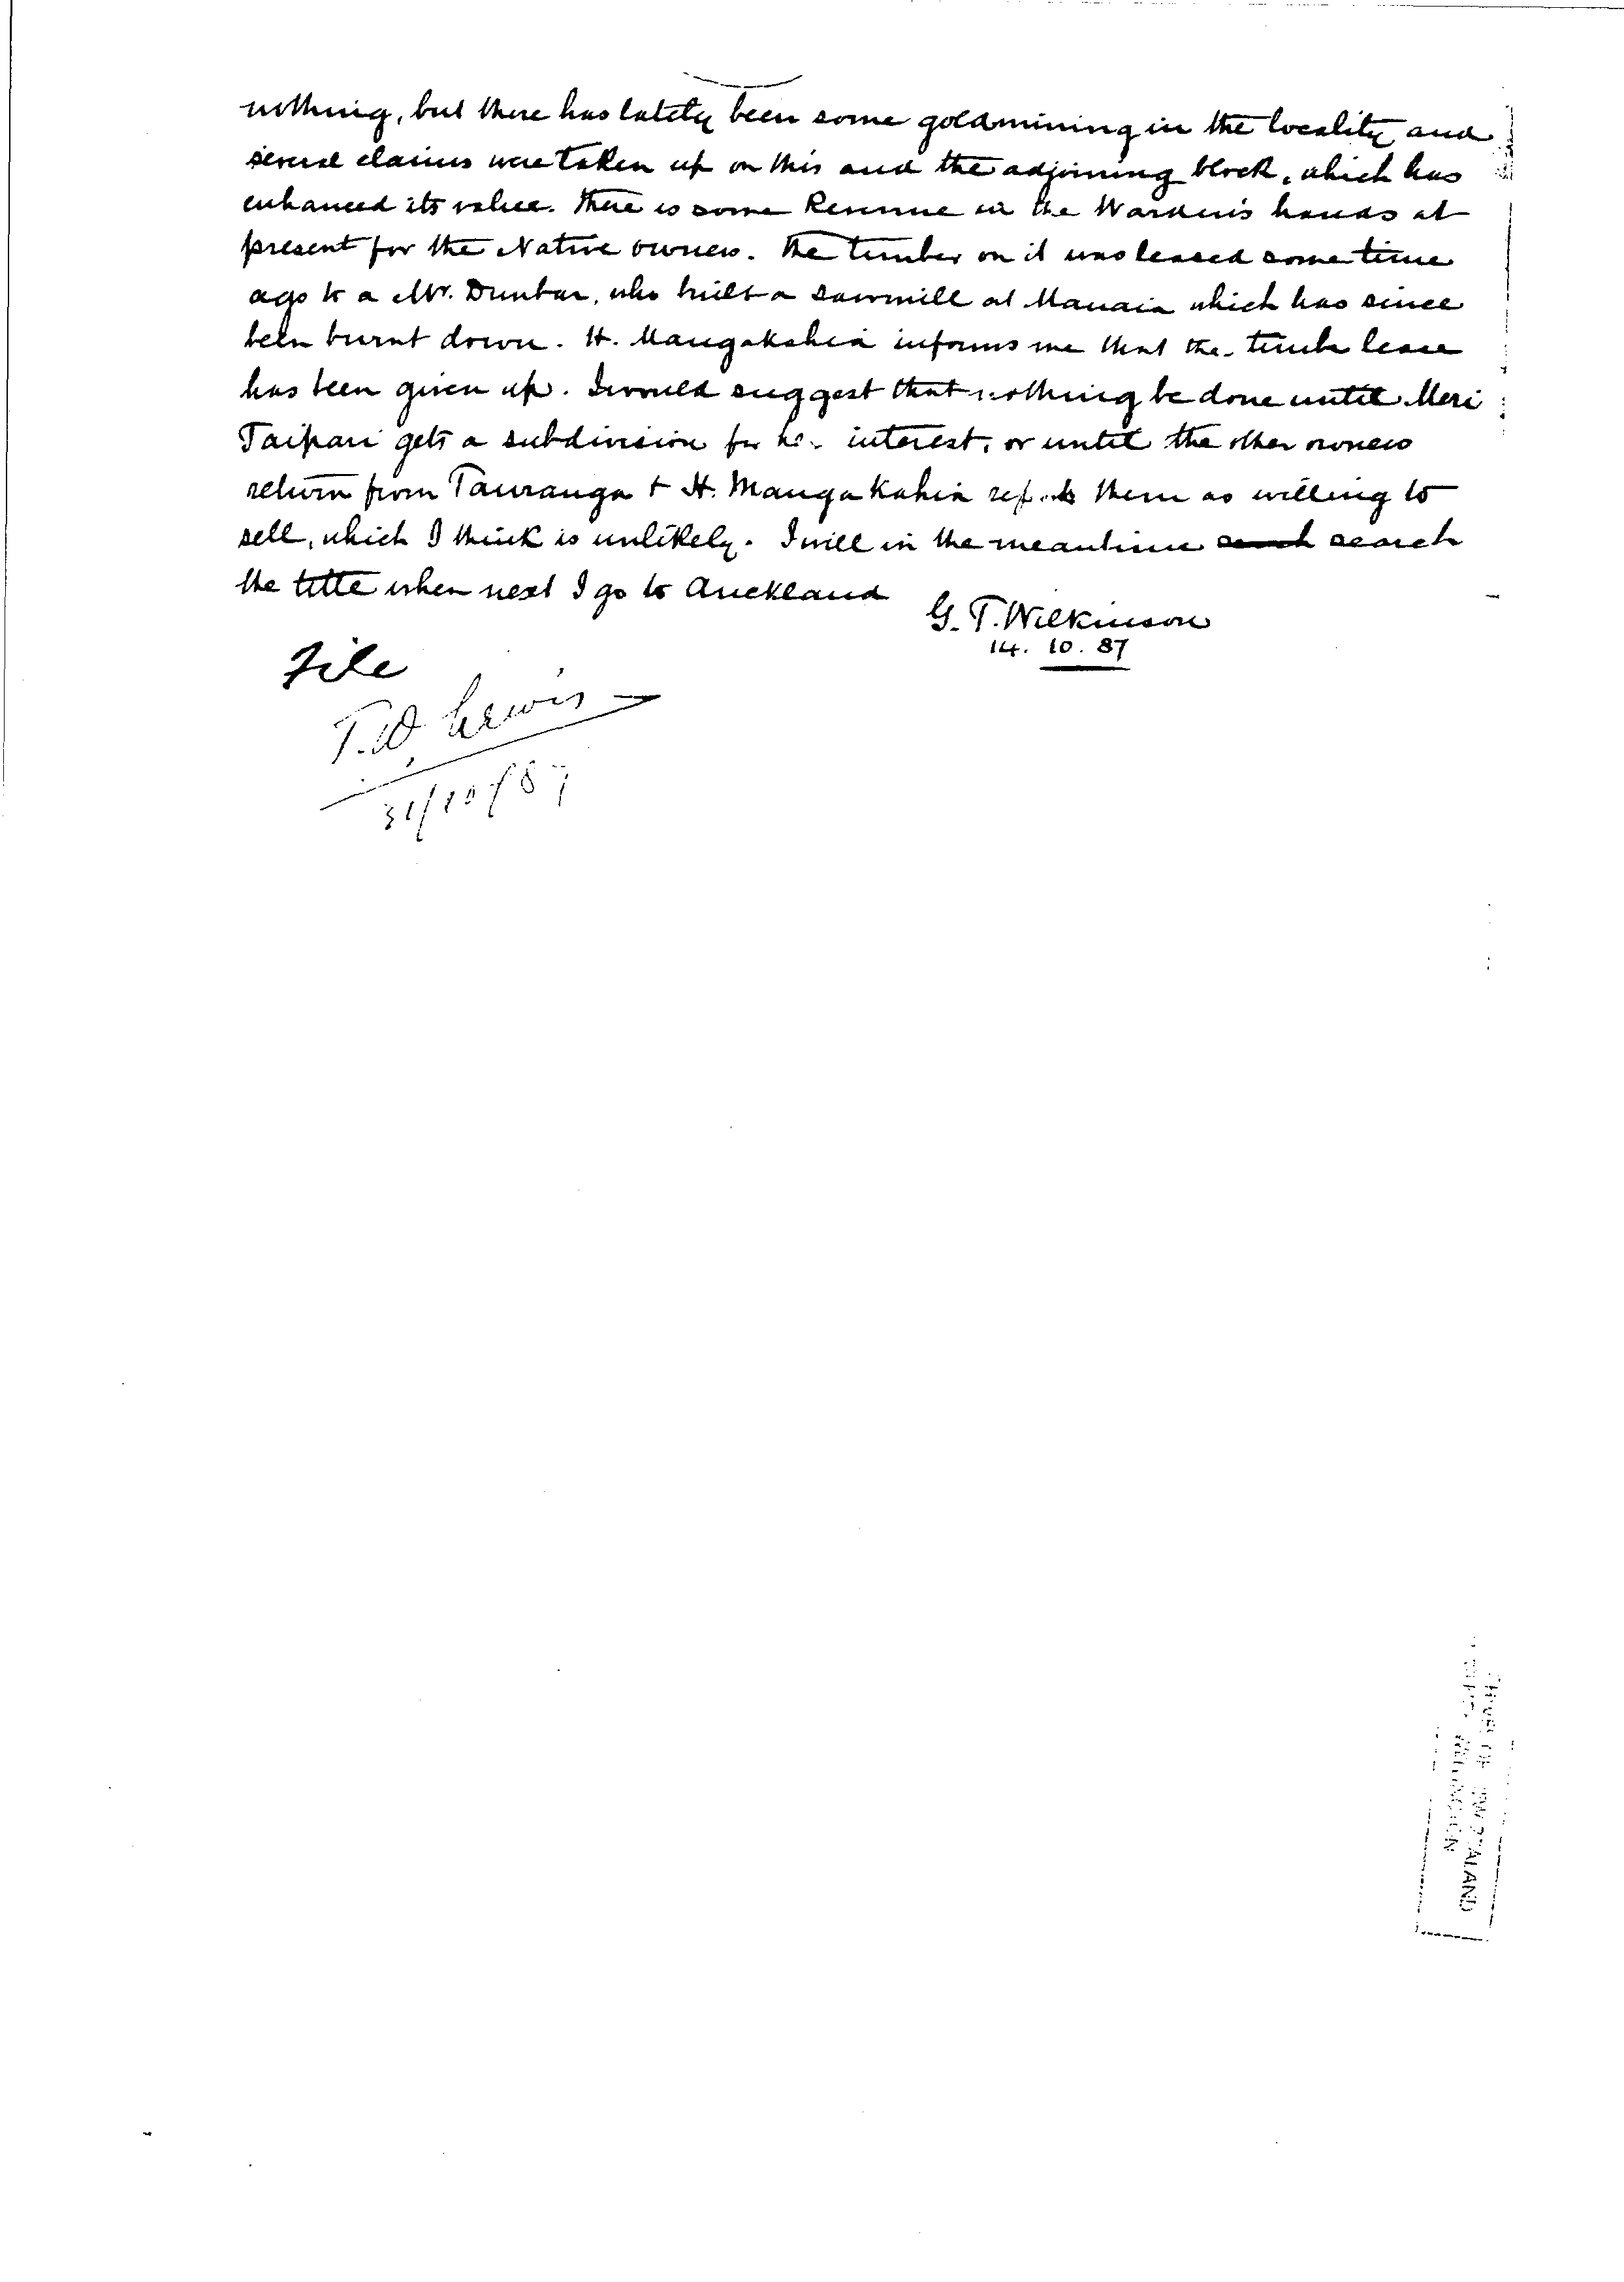 nothing, but there has lately been some goldmining in the locality and
several claims were taken up on this and the adjoining block, which has
enhanced its value. There is some Revenue in the Warden's hands at
present for the Native owners. The timber on it was leased some time
ago to a Mr. Dunbar, who built a sawmill at Manaia which has since
been burnt down. H. Mangakahia informs me that the timber lease
has been given up. I would suggest that nothing be done until Meri
Taipari gets a subdivision for her interest, or until the other owners
return from Tauranga + H. Mangakahia reports them as willing to
sell, which I think is unlikely. I will in the meantime search
the title when next I go to Auckland
G. T. Wilkinson
14. 10. 87
File
T.W. Lewis
31/10/87